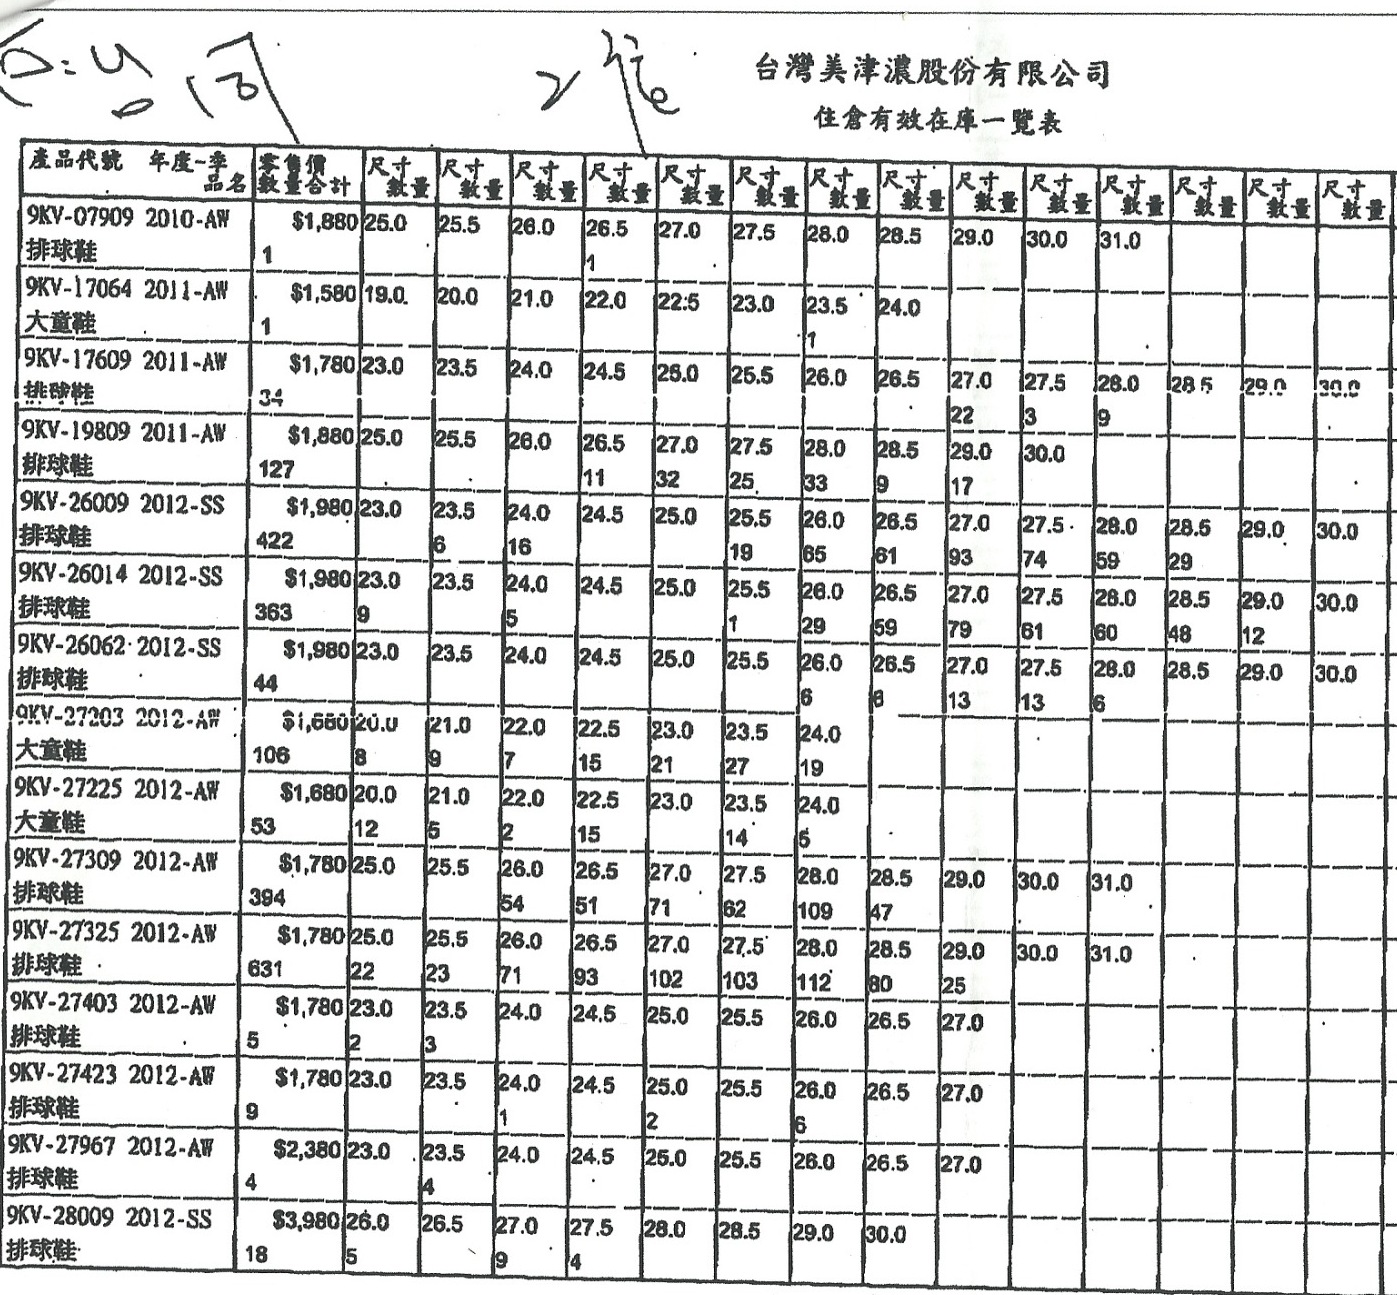 台灣美津濃股份有限公司
住倉有效在庫一覽表
產品代號 年度-季 零售價 尺寸 尺寸 尺寸 尺寸 尺寸 尺寸 尺寸 尺寸 尺寸 尺寸 尺寸 尺寸 尺寸 尺寸
品名 數量合計 數量 數量 數量 數量 數量 數量 數量 數量 數量 數量 數量 數量 數量 數量
9KV-07909 2010-AW $1,880 25.0 25.5 26.0 26.5 27.0 27.5 28.0 28.5 29.0 30.0 31.0
排球鞋 1 1
9KV-17064 2011-AW $1,580 19.0 20.0 21.0 22.0 22.5 23.0 23.5 24.0
大童鞋 1 1
9KV-17609 2011-AW $1,780 23.0 23.5 24.0 24.5 25.0 25.5 26.0 26.5 27.0 27.5 28.0 28.5 29.0 30.0
排球鞋 34 22 3 9
9KV-19809 2011-AW $1,880 25.0 25.5 26.0 26.5 27.0 27.5 28.0 28.5 29.0 30.0
排球鞋 127 11 32 25 33 9 17
9KV-26009 2012-SS $1,980 23.0 23.5 24.0 24.5 25.0 25.5 26.0 26.5 27.0 27.5 28.0 28.5 29.0 30.0
排球鞋 422 6 16 19 65 61 93 74 59 29
9KV-26014 2012-SS $1,980 23.0 23.5 24.0 24.5 25.0 25.5 26.0 26.5 27.0 27.5 28.0 28.5 29.0 30.0
排球鞋 363 9 5 1 29 59 79 61 60 48 12
9KV-26062 2012-SS $1,980 23.0 23.5 24.0 24.5 25.0 25.5 26.0 26.5 27.0 27.5 28.0 28.5 29.0 30.0
排球鞋 44 6 6 13 13 6
9KV-27203 2012-AW $1,680 20.0 21.0 22.0 22.5 23.0 23.5 24.0
大童鞋 106 8 9 7 15 21 27 19
9KV-27225 2012-AW $1,680 20.0 21.0 22.0 22.5 23.0 23.5 24.0
大童鞋 53 12 5 2 15 14 5
9KV-27309 2012-AW $1,780 25.0 25.5 26.0 26.5 27.0 27.5 28.0 28.5 29.0 30.0 31.0
排球鞋 394 54 51 71 62 109 47
9KV-27325 2012-AW $1,780 25.0 25.5 26.0 26.5 27.0 27.5 28.0 28.5 29.0 30.0 31.0
排球鞋 631 22 23 71 93 102 103 112 80 25
9KV-27403 2012-AW $1,780 23.0 23.5 24.0 24.5 25.0 25.5 26.0 26.5 27.0
排球鞋 5 2 3
9KV-27423 2012-AW $1,780 23.0 23.5 24.0 24.5 25.0 25.5 26.0 26.5 27.0
排球鞋 9 1 2 6
9KV-27967 2012-AW $2,380 23.0 23.5 24.0 24.5 25.0 25.5 26.0 26.5 27.0
排球鞋 4 4
9KV-28009 2012-SS $3,980 26.0 26.5 27.0 27.5 28.0 28.5 29.0 30.0
排球鞋 18 5 9 4